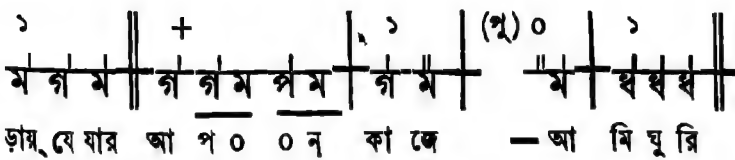 ১ + ১ (পু) ০ ১
ম গ ম গ গ ম প ম গ ম ম ধ ধ ধ
ড়ায়্ যে যার আ প ০ ০ ন্ কা জে — আ মি ঘু রি